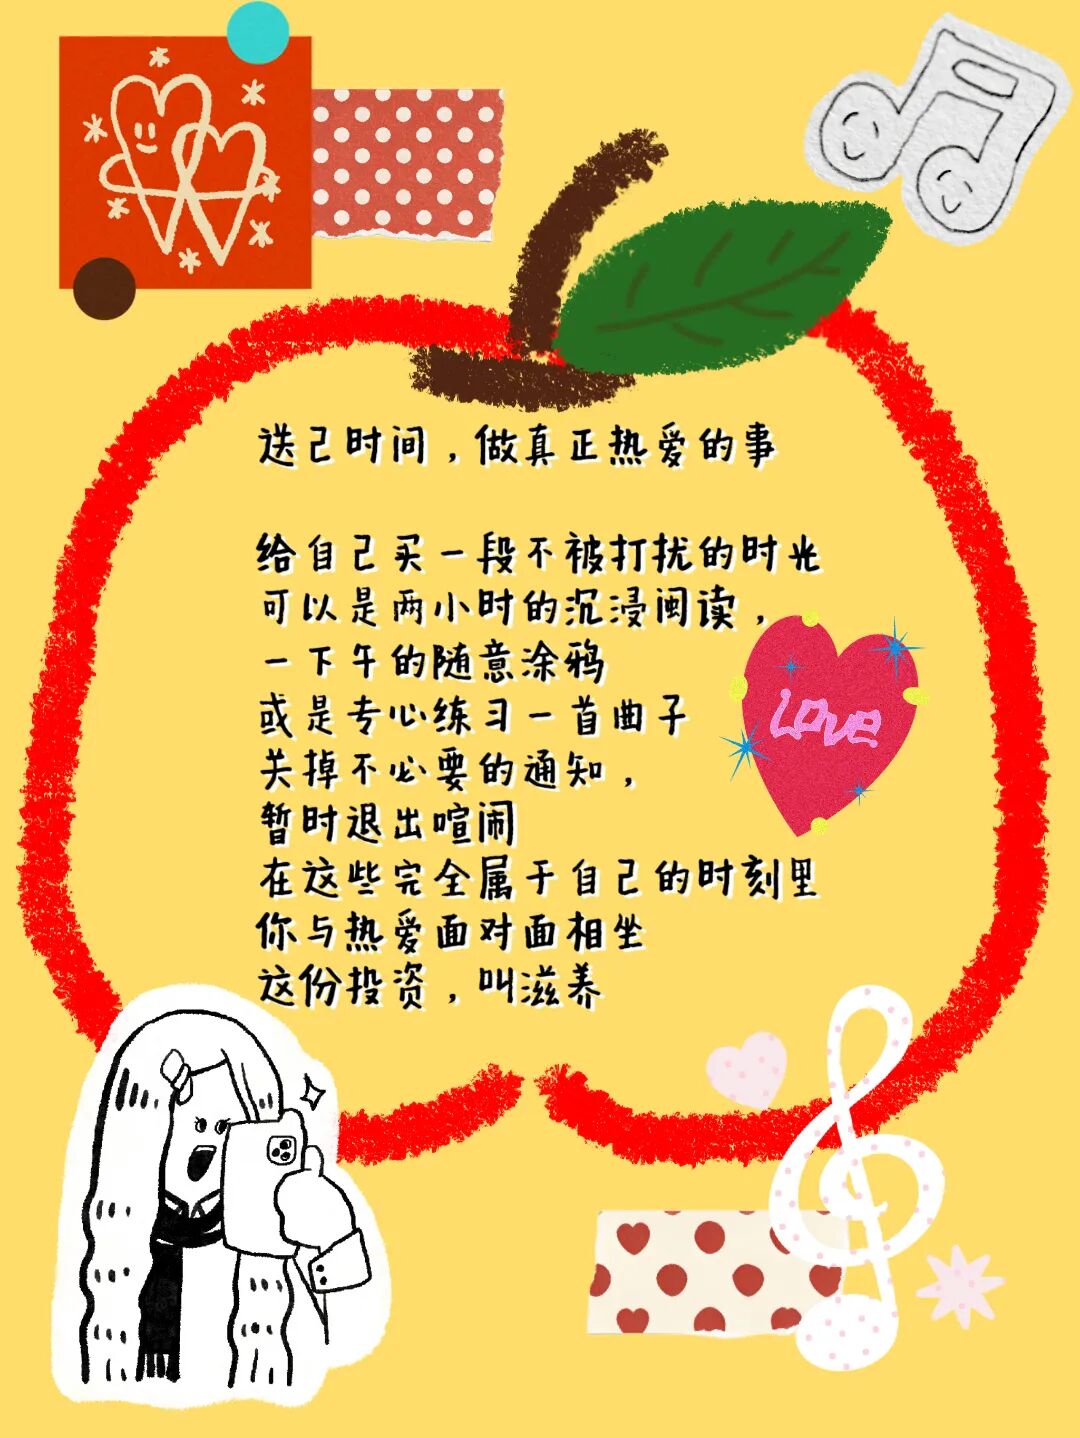 送己时间，做真正热爱的事
给自己买一段不被打扰的时光
可以是两小时的沉浸阅读，
一下午的随意涂鸦
或是专心练习一首曲子
关掉不必要的通知，
暂时退出喧闹
在这些完全属于自己的时刻里
你与热爱面对面相坐
这份投资，叫滋养
LOVE